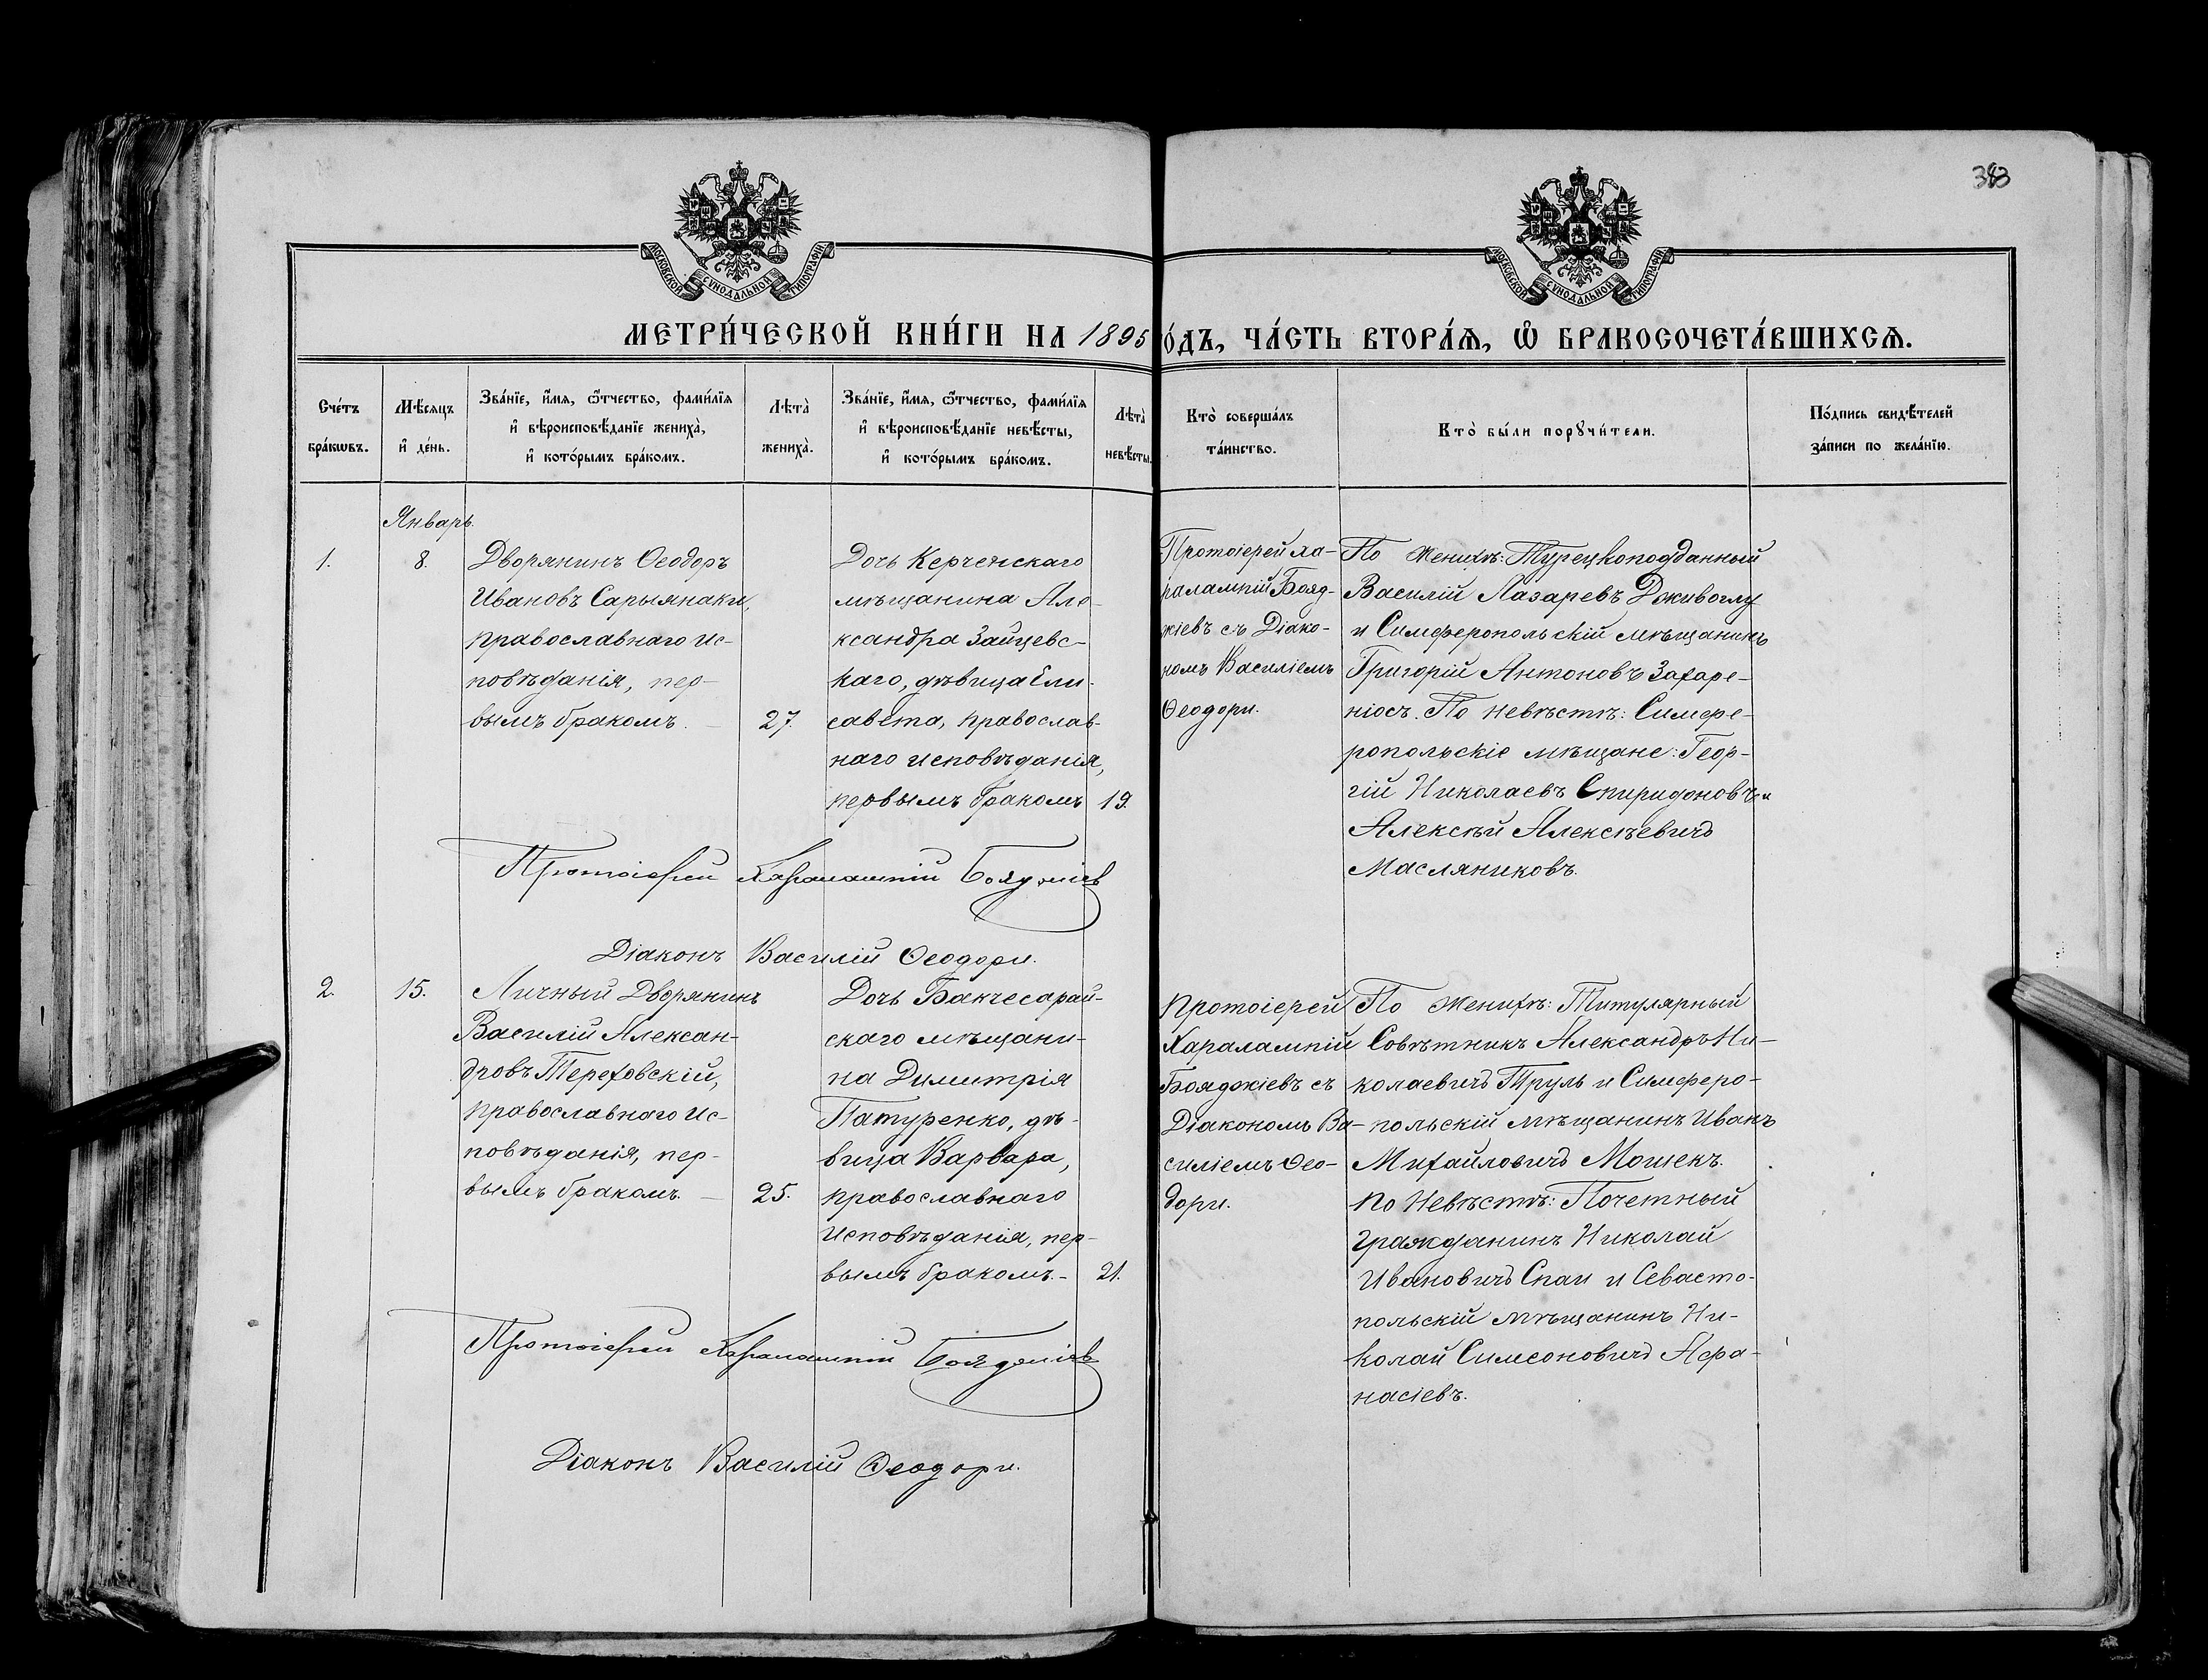 383
МОСКОВСКОЙ СѴНОДАЛЬНОЙ ТИПОГРАФІИ
МОСКОВСКОЙ СѴНОДАЛЬНОЙ ТИПОГРАФІИ
МЕТРИ́ЧЕСКОЙ КНИ́ГИ НА 1895
О́ДЪ, ЧА́СТЬ ВТОРА́Ѧ, Ѽ БРАКОСОЧЕТА́ВШИХСѦ.
Сче́тъ
бра́кѡвъ.
Мѣ́сѧцъ
и҆ де́нь.
Зва́нїе, и҆́мѧ, ѻ҆́тчество, фами́лїѧ
и҆ вѣроисповѣ́данїе жениха̀,
и҆ кото́рымъ бра́комъ.
Лѣта̀
жениха̀.
Зва́нїе, и҆́мѧ, ѻ҆́тчество, фами́лїѧ
и҆ вѣроисповѣ́данїе невѣ́сты,
и҆ кото́рымъ бра́комъ.
Лѣта̀
невѣ́сты.
Кто̀ соверша́лъ
та́инство.
Кто̀ бы́ли порꙋчи́тели.
По́дпись свидѣ́телей
за́писи по жела́нїю.
Январь.
1.
8.
Дворянинъ Ѳеодоръ
Ивановъ Сарыянаки,
православнаго ис-
повѣданія, пер-
вымъ бракомъ. —
27.
Дочь Керченскаго
мѣщанина Але-
ксандра Зайцевс-
каго, дѣвица Ели-
савета, православ-
наго исповѣданія,
первымъ бракомъ
19.
Протоіерей Ха-
ралампій Бояд-
жіевъ съ Діако-
номъ Василіемъ
Ѳеодори.
По Женихѣ: Турецкоподданный
Василій Лазаревъ Дживоглу
и Симферопольскій мѣщанинъ
Григорій Антоновъ Захаре-
ніосъ. По невѣстѣ: Симфе-
ропольскіе мѣщане: Геор-
гій Николаевъ Спиридоновъ и
Алексѣй Алексѣевичъ
Масляниковъ.
Протоіерей Харалампій Бояджіевъ
Діаконъ Василій Ѳеодори.
2.
15.
Личный Дворянинъ
Василій Алексан-
дровъ Тереховскій,
православнаго ис-
повѣданія, пер-
вымъ бракомъ. —
25.
Дочь Бакчесарай-
скаго мѣщани-
на Димитрія
Патуренко, дѣ-
вица Варвара,
православнаго
исповѣданія, пер-
вымъ бракомъ. -
21.
Протоіерей
Харалампій
Бояджіевъ съ
Діакономъ Ва-
силіемъ Ѳео-
дори.
По Женихѣ: Титулярный
Совѣтникъ Александръ Ни-
колаевичъ Труль и Симферо-
польскій мѣщанинъ Иванъ
Михайловичъ Мошекъ.
По Невѣстѣ: Почетный
гражданинъ Николай
Ивановичъ Спаи и Севасто-
польскій мѣщанинъ Ни-
колай Симеоновичъ Афа-
насіевъ.
Протоіерей Харалампій Бояджіевъ
Діаконъ Василій Ѳеодори.